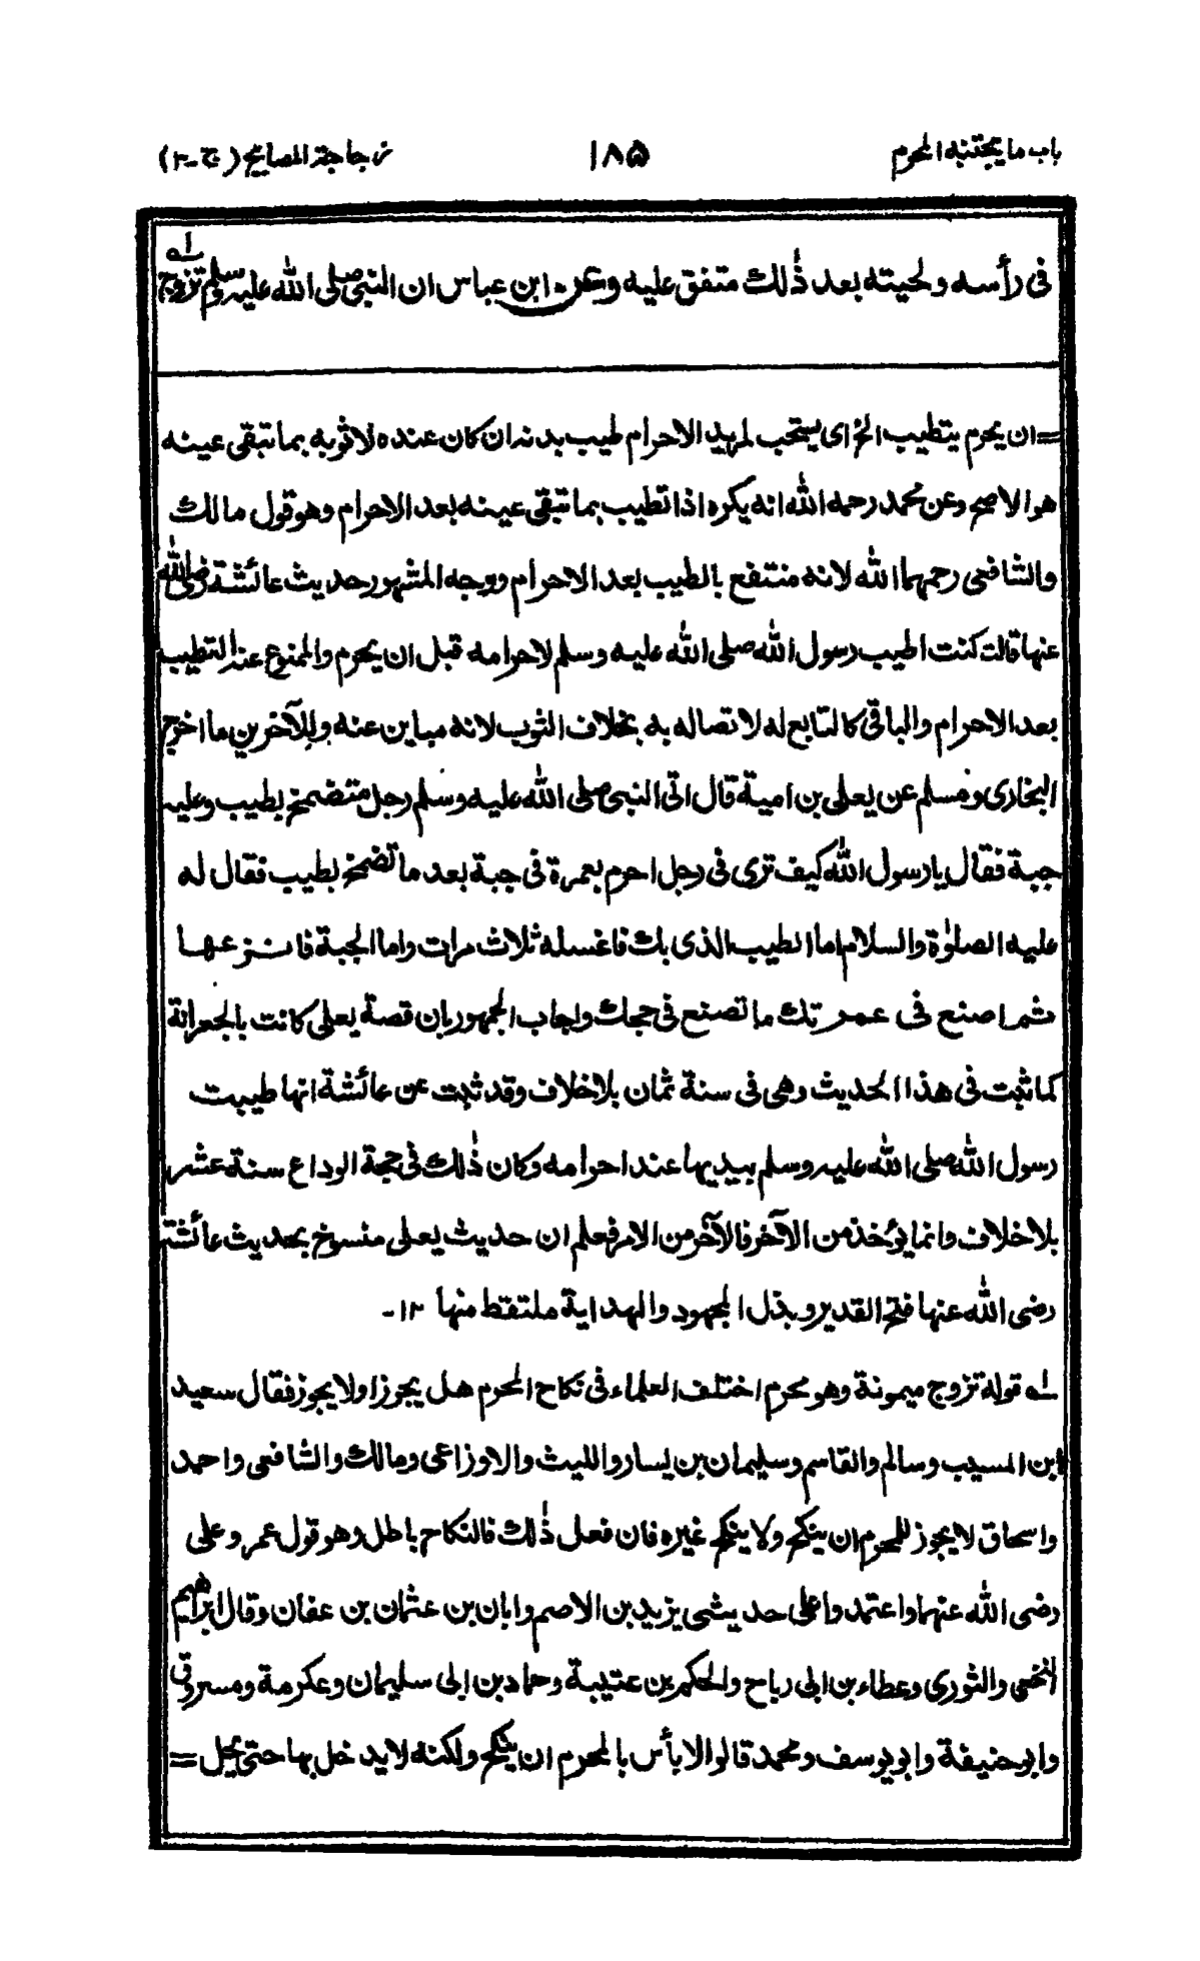 باب ما يجتنبه المحرم ١٨٥ زجاجة المصابيح (ج-٢)
فى رأسه ولحيته بعد ذٰلك متفق عليه وعن ابن عباس ان النبى صلى الله عليه وسلم تزوج له
=ان يحرم يتطيب الخ اى يستحب لمريد الاحرام طيب بدنه ان كان عنده لا ثوبه بما تبقى عينه
هو الاصح وعن محمد رحمه الله انه يكره اذا تطيب بما تبقى عينه بعد الاحرام وهو قول مالك
والشافعى رحمهما الله لانه منتفع بالطيب بعد الاحرام ووجه المشهور حديث عائشة رضى الله
عنها قالت كنت اطيب رسول الله صلى الله عليه وسلم لاحرامه قبل ان يحرم والممنوع عنه التطيب
بعد الاحرام والباقى كالتابع له لاتصاله به بخلاف الثوب لانه مباين عنه وللآخرين ما اخرج
البخارى ومسلم عن يعلى بن امية قال اتى النبى صلى الله عليه وسلم رجل متضمخ بطيب وعليه
جبة فقال يا رسول الله كيف ترى فى رجل احرم بعمرة فى جبة بعد ما تضمخ بطيب فقال له
عليه الصلوٰة والسلام اما الطيب الذى بك فاغسله ثلاث مرات واما الجبة فانزعها
ثم اصنع فى عمرتك ما تصنع فى حجك واجاب الجمهور بان قصة يعلى كانت بالجعرانة
كما ثبت فى هذا الحديث وهى فى سنة ثمان بلا خلاف وقد ثبت عن عائشة انها طيبت
رسول الله صلى الله عليه وسلم بيديها عند احرامه وكان ذٰلك فى حجة الوداع سنة عشر
بلا خلاف وانما يؤخذ من الآخر فالآخر من الامر فعلم ان حديث يعلى منسوخ بحديث عائشة
رضى الله عنها فتح القدير وبذل المجهود والهداية ملتقط منها ١٢-
له قوله تزوج ميمونة وهو محرم اختلف العلماء فى نكاح المحرم هل يجوز اولا يجوز فقال سعيد
ابن المسيب وسالم والقاسم وسليمان بن يسار والليث والاوزاعى ومالك والشافعى واحمد
واسحاق لا يجوز للمحرم ان ينكح ولا ينكح غيره فان فعل ذٰلك فالنكاح باطل وهو قول عمر وعلى
رضى الله عنهما واعتمدوا على حديثى يزيد بن الاصم وابان بن عثمان بن عفان وقال ابراهيم
النخعى والثورى وعطاء بن ابى رباح والحكم بن عتيبة وحماد بن ابى سليمان وعكرمة ومسروق
وابو حنيفة وابو يوسف ومحمد قالوا لا بأس بالمحرم ان ينكح ولكنه لا يدخل بها حتى يحل=